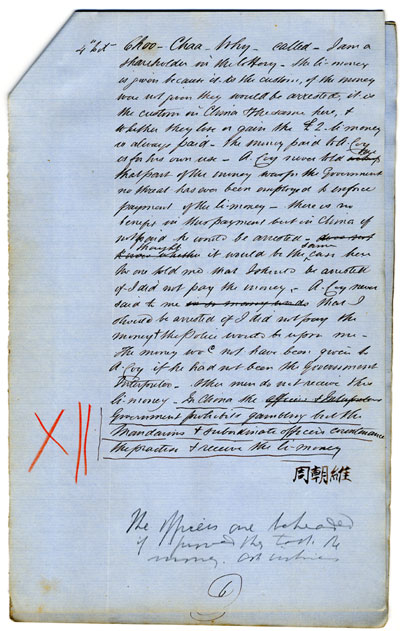 4th Wit Choo - Chaa - Why - called - I am a
shareholder in the lottery - The li-money
is given because it is the custom, if the money
were not given they would be arrested, it is
the custom in China & the same here, &
whether they lose or gain the £2. li money
is always paid - The money paid to A. Coy
is for his own use - A. Coy never told me
that part of this money was for the Government
no threat has ever been employed to enforce
payment of the li-money - there is no
benefit in this payment but in China if
not paid he would be arrested - does not
know whether thought it would be the same case here
No one told me that I should be arrested
if I did not pay the money - A. Coy never
said to me in so many words that I
should be arrested if I did not pay the
money & the Police would be upon me -
The money wod not have been given to
A. Coy if he had not been the Government
Interpreter - other men do not receive this
li-money - In China the officers &
Government prohibits gambling but the
Mandarins & subordinate officers countenance
the practice & receive the li-money
周朝維
The officers are beheaded
if proved they took the
money
6